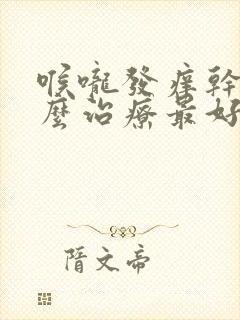 喉嚨發痒幹
麼治療最好
隋文帝